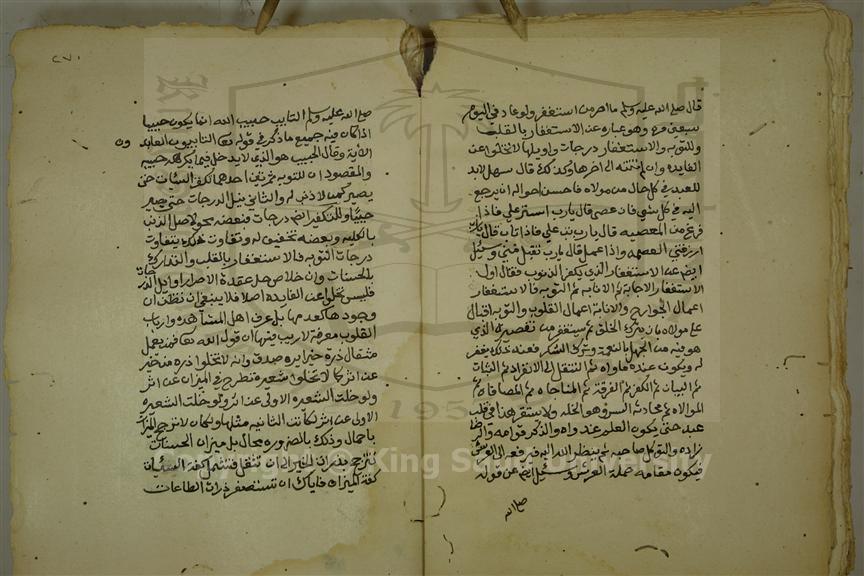 قال صلى الله عليه وسلم ما اصر من استغفر ولو عاد في اليوم
سبعين مره وهو عباره عن الاستغفار بالقلب
وللتوبه والاستغفار درجات واوايلها لا تخلوا عن
الفايده وان لم تنته الى اخرها وكذلك قال سهل لا بد
للعبد في كل حال من مولاه فاحسن احواله ان يرجع
اليه في كل شي فان عصى قال يا رب استر علي فاذا
فرغ من المعصيه قال يا رب تب علي فاذا تاب قال يا رب
ارزقني العصمه واذا عمل قال يا رب تقبل مني وسئل
ايضا عن الاستغفار الذي يكفر الذنوب فقال اول
الاستغفار الاجابة ثم الانابه ثم التوبه فالاستغفار
اعمال الجوارح والانابة اعمال القلوب والتوبه اقبال
على مولاه بان يترك الخلق ثم يستغفر من تقصيره الذي
هو فيه من الجهل بالنعمه وترك الشكر فعند ذلك يغفر
له ويكون عنده ماواه ثم التنقل الى الانفراد ثم الثبات
ثم البيان ثم الفكر ثم المعرفة ثم المناجاه ثم المصافاه ثم
الموالاه ثم محادثة السر وهو الخله ولا يستقر هذا في قلب
عبد حتى يكون العلم غذاه والذكر قوامه والرضا
زاده والتوكل صاحبه ثم ينظر الله اليه فيرفعه الى العرش
فيكون مقامه مقام حملة العرش وسئل ايضا عن قوله
صلى الله
٢٧٠
صلى الله عليه وسلم التايب حبيب الله انما يكون حبيبا
اذا كان فيه جميع ما ذكر في قوله تعالى التايبون العابدون
الاية وقال الحبيب هو الذي لا يدخل فيما يكرهه حبيبه
والمقصود ان للتوبه ثمرتين احدهما تكفير السيات حتى
يصير كمن لا ذنب له والثاني نيل الدرجات حتى يصير
حبيبا وللتكفير ايضا درجات فبعضه محو لاصل الذنب
بالكليه وبعضه تخفيف له ويتفاوت ذلك بتفاوت
درجات التوبه فالاستغفار بالقلب والتدارك
بالحسنات وان خلا عن حل عقدة الاصرار من اوايل الدرجات
فليس يخلوا عن الفايده اصلا فلا ينبغي ان تظن ان
وجودها كعدمها بل عرف اهل المشاهده وارباب
القلوب معرفة لا ريب فيها ان قول الله تعالى فمن يعمل
مثقال ذرة خيرا يره صدق وانه لا تخلوا ذره من خير
عن اثر كما لا تخلوا شعيره تطرح في الميزان عن اثر
ولو خلت الشعيره الاولى عن اثر لكانت
الثانيه مثلها ولكان لا يترجح الميزان
باحمال وذلك بالضروره محال بل ميزان الحسنات
يترجح بذرات الخير الى ان تثقل فتشيل كفة السيئات
كفة الميزان فاياك ان تستصغر ذرات الطاعات
Copyright © King Saud University
195